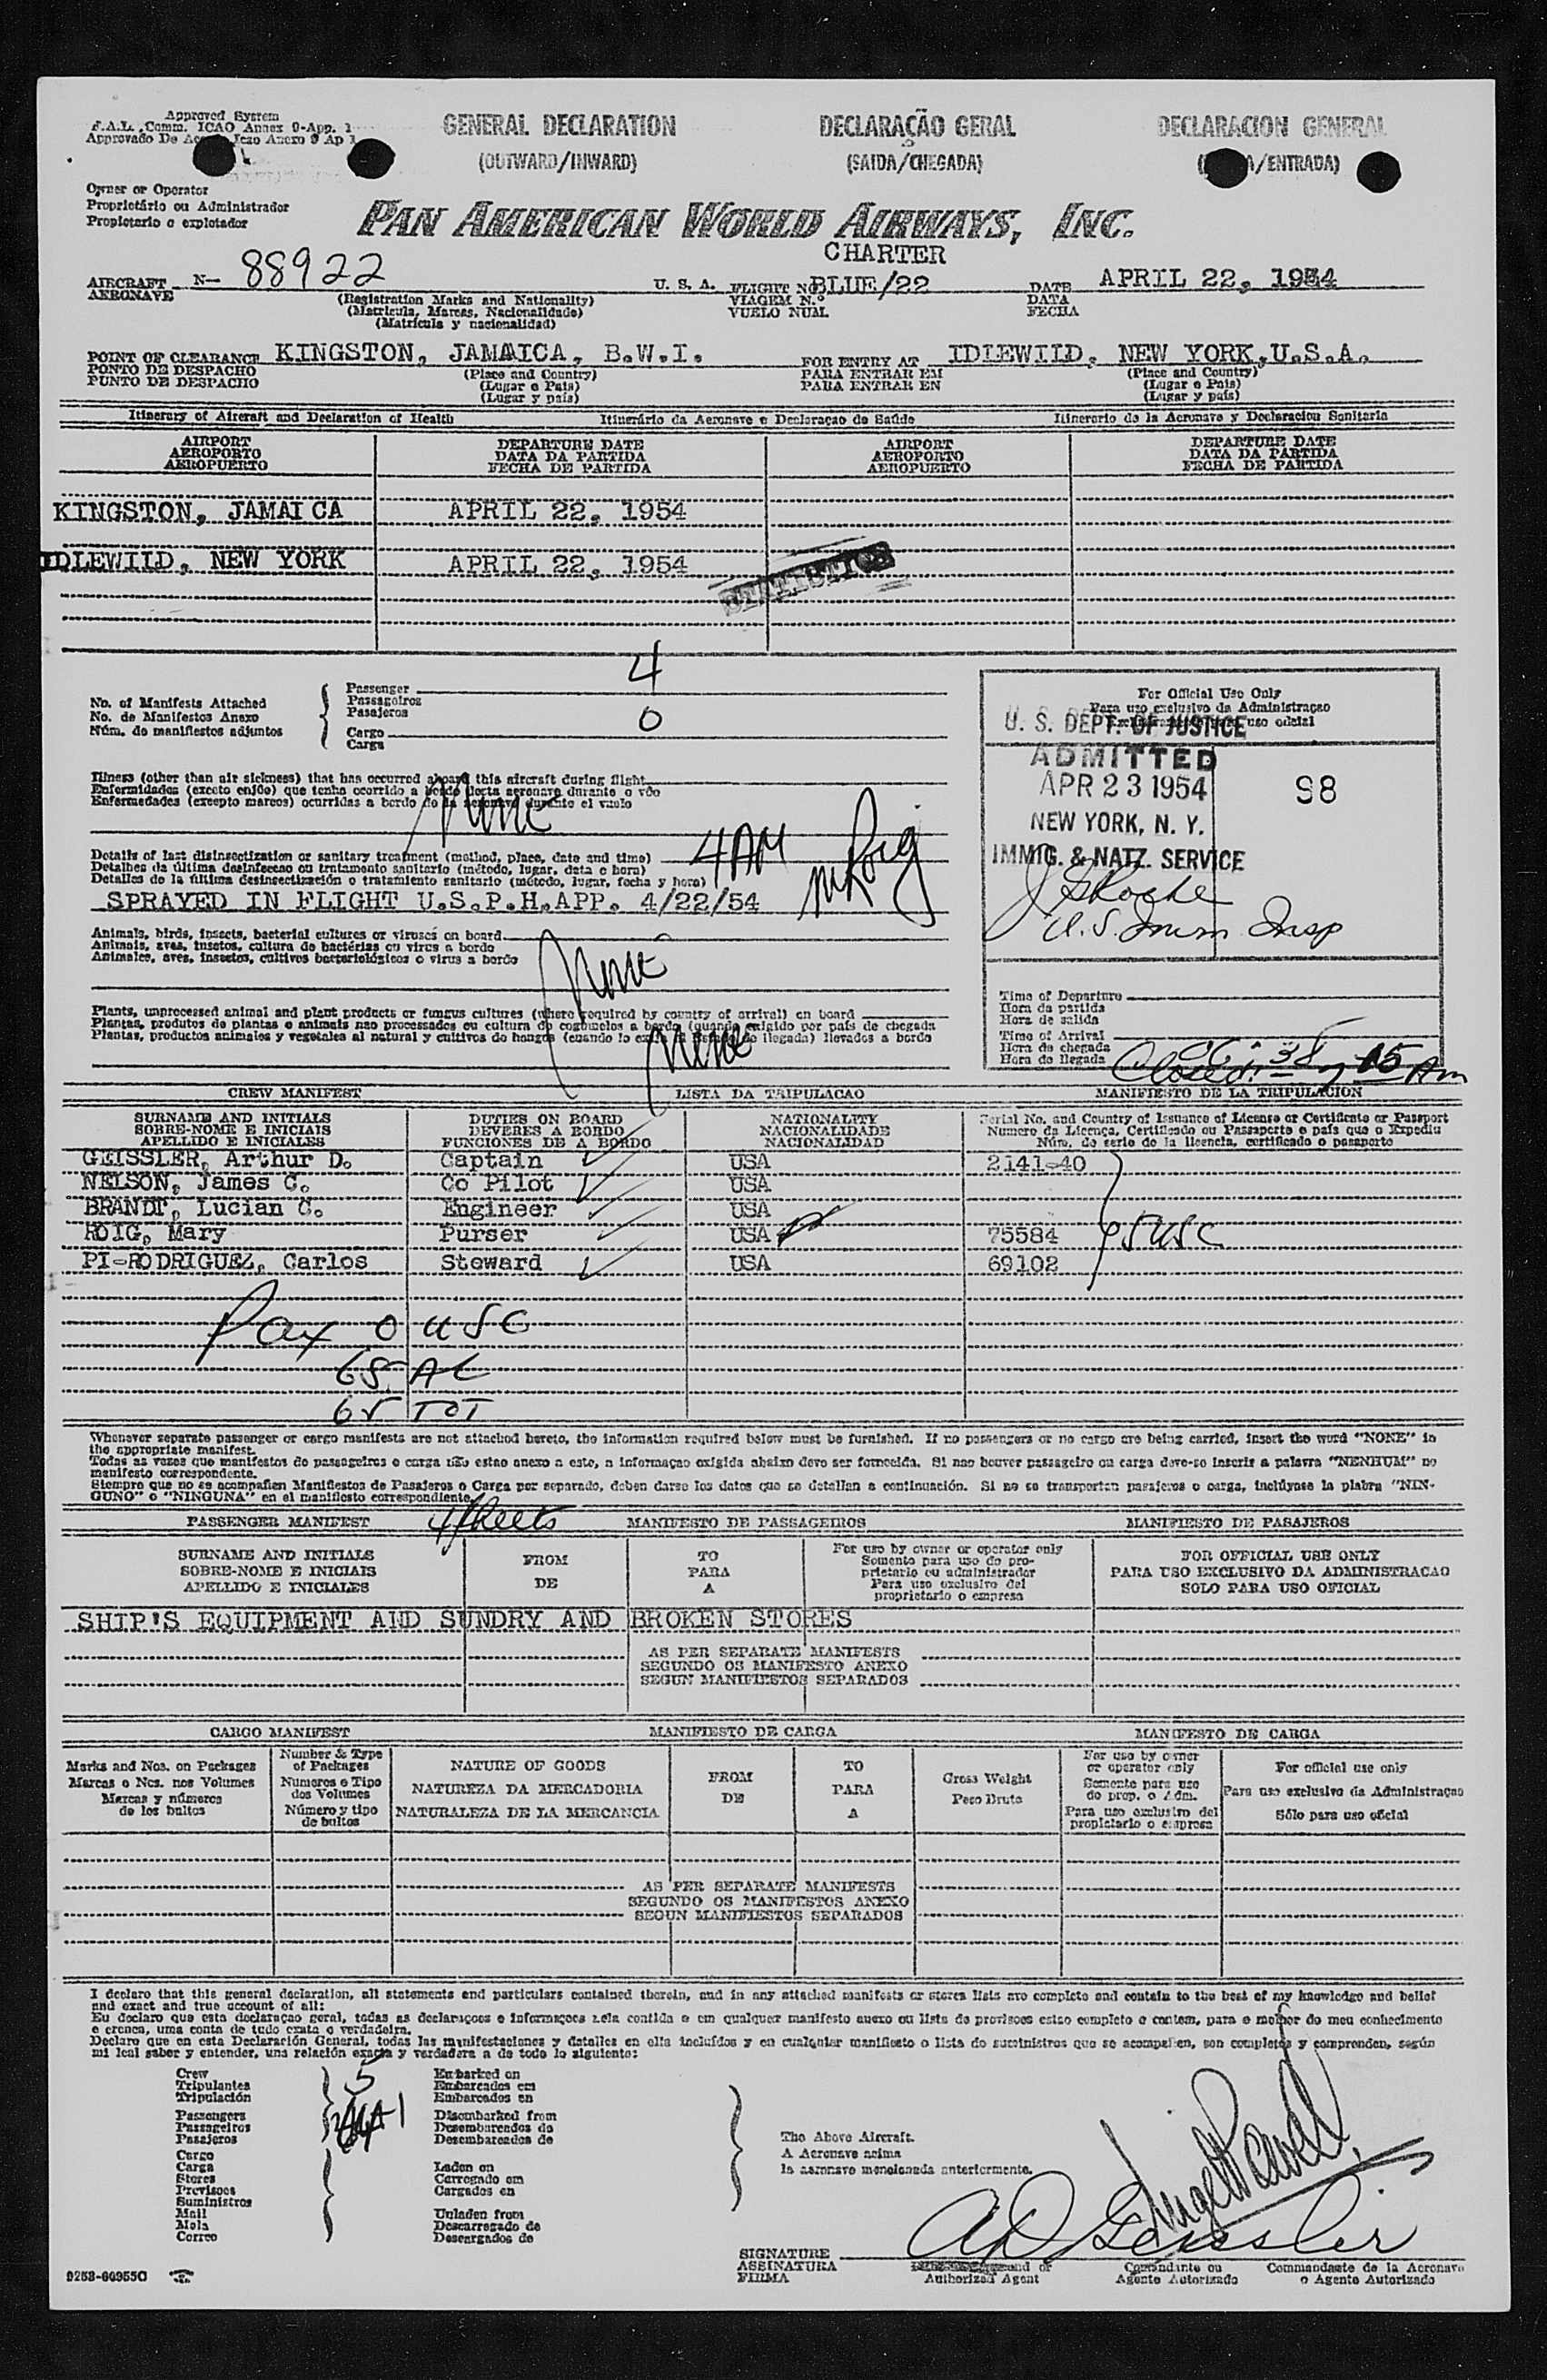 Approved System
F.A.L. Comm. ICAO Annex 9-App. 1
Approvado De Icao Anexo 9 Ap 1
GENERAL DECLARATION
(OUTWARD/INWARD)
DECLARAÇÃO GERAL
(SAIDA/CHEGADA)
DECLARACION GENERAL
/ENTRADA)
Owner or Operator
Proprietário ou Administrador
Propietario o explotador
PAN AMERICAN WORLD AIRWAYS, INC.
CHARTER
AIRCRAFT N- 88922 U. S. A. FLIGHT NO BLUE/22 DATE APRIL 22, 1954
AERONAVE (Registration Marks and Nationality) VIAGEM N.º DATA
(Matrícula, Marcas, Nacionalidade) VUELO NUM. FECHA
(Matrícula y nacionalidad)
POINT OF CLEARANCE KINGSTON, JAMAICA, B.W.I. FOR ENTRY AT IDLEWILD, NEW YORK, U.S.A.
PONTO DE DESPACHO (Place and Country) PARA ENTRAR EM (Place and Country)
PUNTO DE DESPACHO (Lugar e Pais) PARA ENTRAR EN (Lugar e Pais)
(Lugar y país) (Lugar y país)
Itinerary of Aircraft and Declaration of Health Itinerário da Aeronave e Declaraçao de Saúde Itinerario de la Aeronave y Declaracion Sanitaria
AIRPORT DEPARTURE DATE AIRPORT DEPARTURE DATE
AEROPORTO DATA DA PARTIDA AEROPORTO DATA DA PARTIDA
AEROPUERTO FECHA DE PARTIDA AEROPUERTO FECHA DE PARTIDA
KINGSTON, JAMAICA APRIL 22, 1954
IDLEWILD, NEW YORK APRIL 22, 1954
STATISTICS
No. of Manifests Attached
No. de Manifestos Anexo
Núm. de manifiestos adjuntos
Passenger 4
Passageiros
Pasajeros
Cargo 0
Carga
For Official Use Only
Para uso exclusivo da Administraçao
uso oficial
U. S. DEPT. OF JUSTICE
ADMITTED
APR 23 1954 98
NEW YORK, N. Y.
IMMIG. & NATZ. SERVICE
U.S. Imm Insp
Illness (other than air sickness) that has occurred aboard this aircraft during flight
Enfermidades (exceto enjôo) que tenha ocorrido a bordo desta aeronave durante o vôo
Enfermedades (excepto mareos) ocurridas a bordo de la aeronave durante el vuelo
None
Details of last disinsectization or sanitary treatment (method, place, date and time) 4AM
Detalhes da última desinfeccao ou tratamento sanitario (método, lugar, data e hora)
Detalles de la última desinsectización o tratamiento sanitario (método, lugar, fecha y hora)
SPRAYED IN FLIGHT U.S.P.H.APP. 4/22/54 M Roig
Animals, birds, insects, bacterial cultures or viruses on board
Animais, aves, insetos, cultura de bactérias ou virus a bordo
Animales, aves, insectos, cultivos bacteriológicos o virus a bordo
None
Plants, unprocessed animal and plant products or fungus cultures (where required by country of arrival) on board
Plantas, produtos de plantas e animais nao processados ou cultura de cogumelos a bordo (quando exigido por país de chegada
Plantas, productos animales y vegetales al natural y cultivos de hongos (cuando lo exija el Estado de llegada) llevados a bordo
None
Time of Departure
Hora da partida
Hora de salida
Time of Arrival
Hora da chegada
Hora de llegada
CREW MANIFEST LISTA DA TRIPULACAO MANIFIESTO DE LA TRIPULACION
SURNAME AND INITIALS DUTIES ON BOARD NATIONALITY Serial No. and Country of Issuance of License or Certificate or Passport
SOBRE-NOME E INICIAIS DEVERES A BORDO NACIONALIDADE Numero da Licença, Certificado ou Passaporte e país que o Expediu
APELLIDO E INICIALES FUNCIONES DE A BORDO NACIONALIDAD Núm. de serie de la licencia, certificado o pasaporte
GEISSLER, Arthur D. Captain USA 2141-40
NELSON, James C. Co Pilot USA
BRANDT, Lucian C. Engineer USA
ROIG, Mary Purser USA 75584 5 USC
PI-RODRIGUEZ, Carlos Steward USA 69102
Pax 0 USC
65 AL
65 TOT
Whenever separate passenger or cargo manifests are not attached hereto, the information required below must be furnished. If no passengers or no cargo are being carried, insert the word "NONE" in
the appropriate manifest.
Todas as vezes que manifestos de passageiros e carga não estao anexo a este, a informaçao exigida abaixo deve ser fornecida. Si nao houver passageiro ou carga deve-se inserir a palavra "NENHUM" no
manifesto correspondente.
Siempre que no se acompañen Manifiestos de Pasajeros o Carga por separado, deben darse los datos que se detallan a continuación. Si no se transportan pasajeros o carga, inclúyase la plabra "NIN-
GUNO" o "NINGUNA" en el manifiesto correspondiente.
PASSENGER MANIFEST 4 sheets MANIFESTO DE PASSAGEIROS MANIFIESTO DE PASAJEROS
SURNAME AND INITIALS
SOBRE-NOME E INICIAIS
APELLIDO E INICIALES
FROM
DE
TO
PARA
A
For use by owner or operator only
Somente para uso do pro-
prietario ou administrador
Para uso exclusivo del
proprietario o empresa
FOR OFFICIAL USE ONLY
PARA USO EXCLUSIVO DA ADMINISTRACAO
SOLO PARA USO OFICIAL
SHIP'S EQUIPMENT AND SUNDRY AND BROKEN STORES
AS PER SEPARATE MANIFESTS
SEGUNDO OS MANIFESTO ANEXO
SEGUN MANIFIESTOS SEPARADOS
CARGO MANIFEST MANIFIESTO DE CARGA MANIFESTO DE CARGA
Marks and Nos. on Packages
Marcas e Nos. nos Volumes
Marcas y números
de los bultos
Number & Type
of Packages
Numeros e Tipo
dos Volumes
Número y tipo
de bultos
NATURE OF GOODS
NATUREZA DA MERCADORIA
NATURALEZA DE LA MERCANCIA
FROM
DE
TO
PARA
A
Gross Weight
Peso Bruto
For use by owner
or operator only
Semente para uso
do prop. o Adm.
Para uso exclustvo del
propietario o empresa
For official use only
Para uso exclusivo da Administraçao
Sólo para uso oficial
AS PER SEPARATE MANIFESTS
SEGUNDO OS MANIFESTOS ANEXO
SEGUN MANIFIESTOS SEPARADOS
I declare that this general declaration, all statements and particulars contained therein, and in any attached manifests or stores lists are complete and contain to the best of my knowledge and belief
and exact and true account of all:
Eu declaro que esta declaraçao geral, todas as declaraçoes e informaçoes nela contida e em qualquer manifesto anexo ou lista de provisoes estao completo e contem, para o melhor do meu conhecimento
e crenca, uma conta de tudo exata e verdadeira.
Declaro que en esta Declaración General, todas las manifestaciones y detalles en ella incluídos y en cualquier manifiesto o lista de suministros que se acompañen, son completos y comprenden, según
mi leal saber y entender, una relación exacta y verdadera a de todo lo siguiente:
Crew 5
Tripulantes
Tripulación
Passengers
Passageiros
Pasajeros
Cargo
Carga
Stores
Previsoes
Suministros
Mail
Mala
Correo
Embarked on
Embarcados em
Embarcados en
Disembarked from
Desembarcados do
Desembarcados de
Laden on
Carregado em
Cargados en
Unladen from
Descarregado de
Descargados de
The Above Aircraft.
A Aeronave acima
la aeronave mencionada anteriormente.
AD Geissler
SIGNATURE
ASSINATURA
FIRMA
Authorized Agent
Comandante ou
Agente Autorizado
Commandante de la Aeronave
o Agente Autorizado